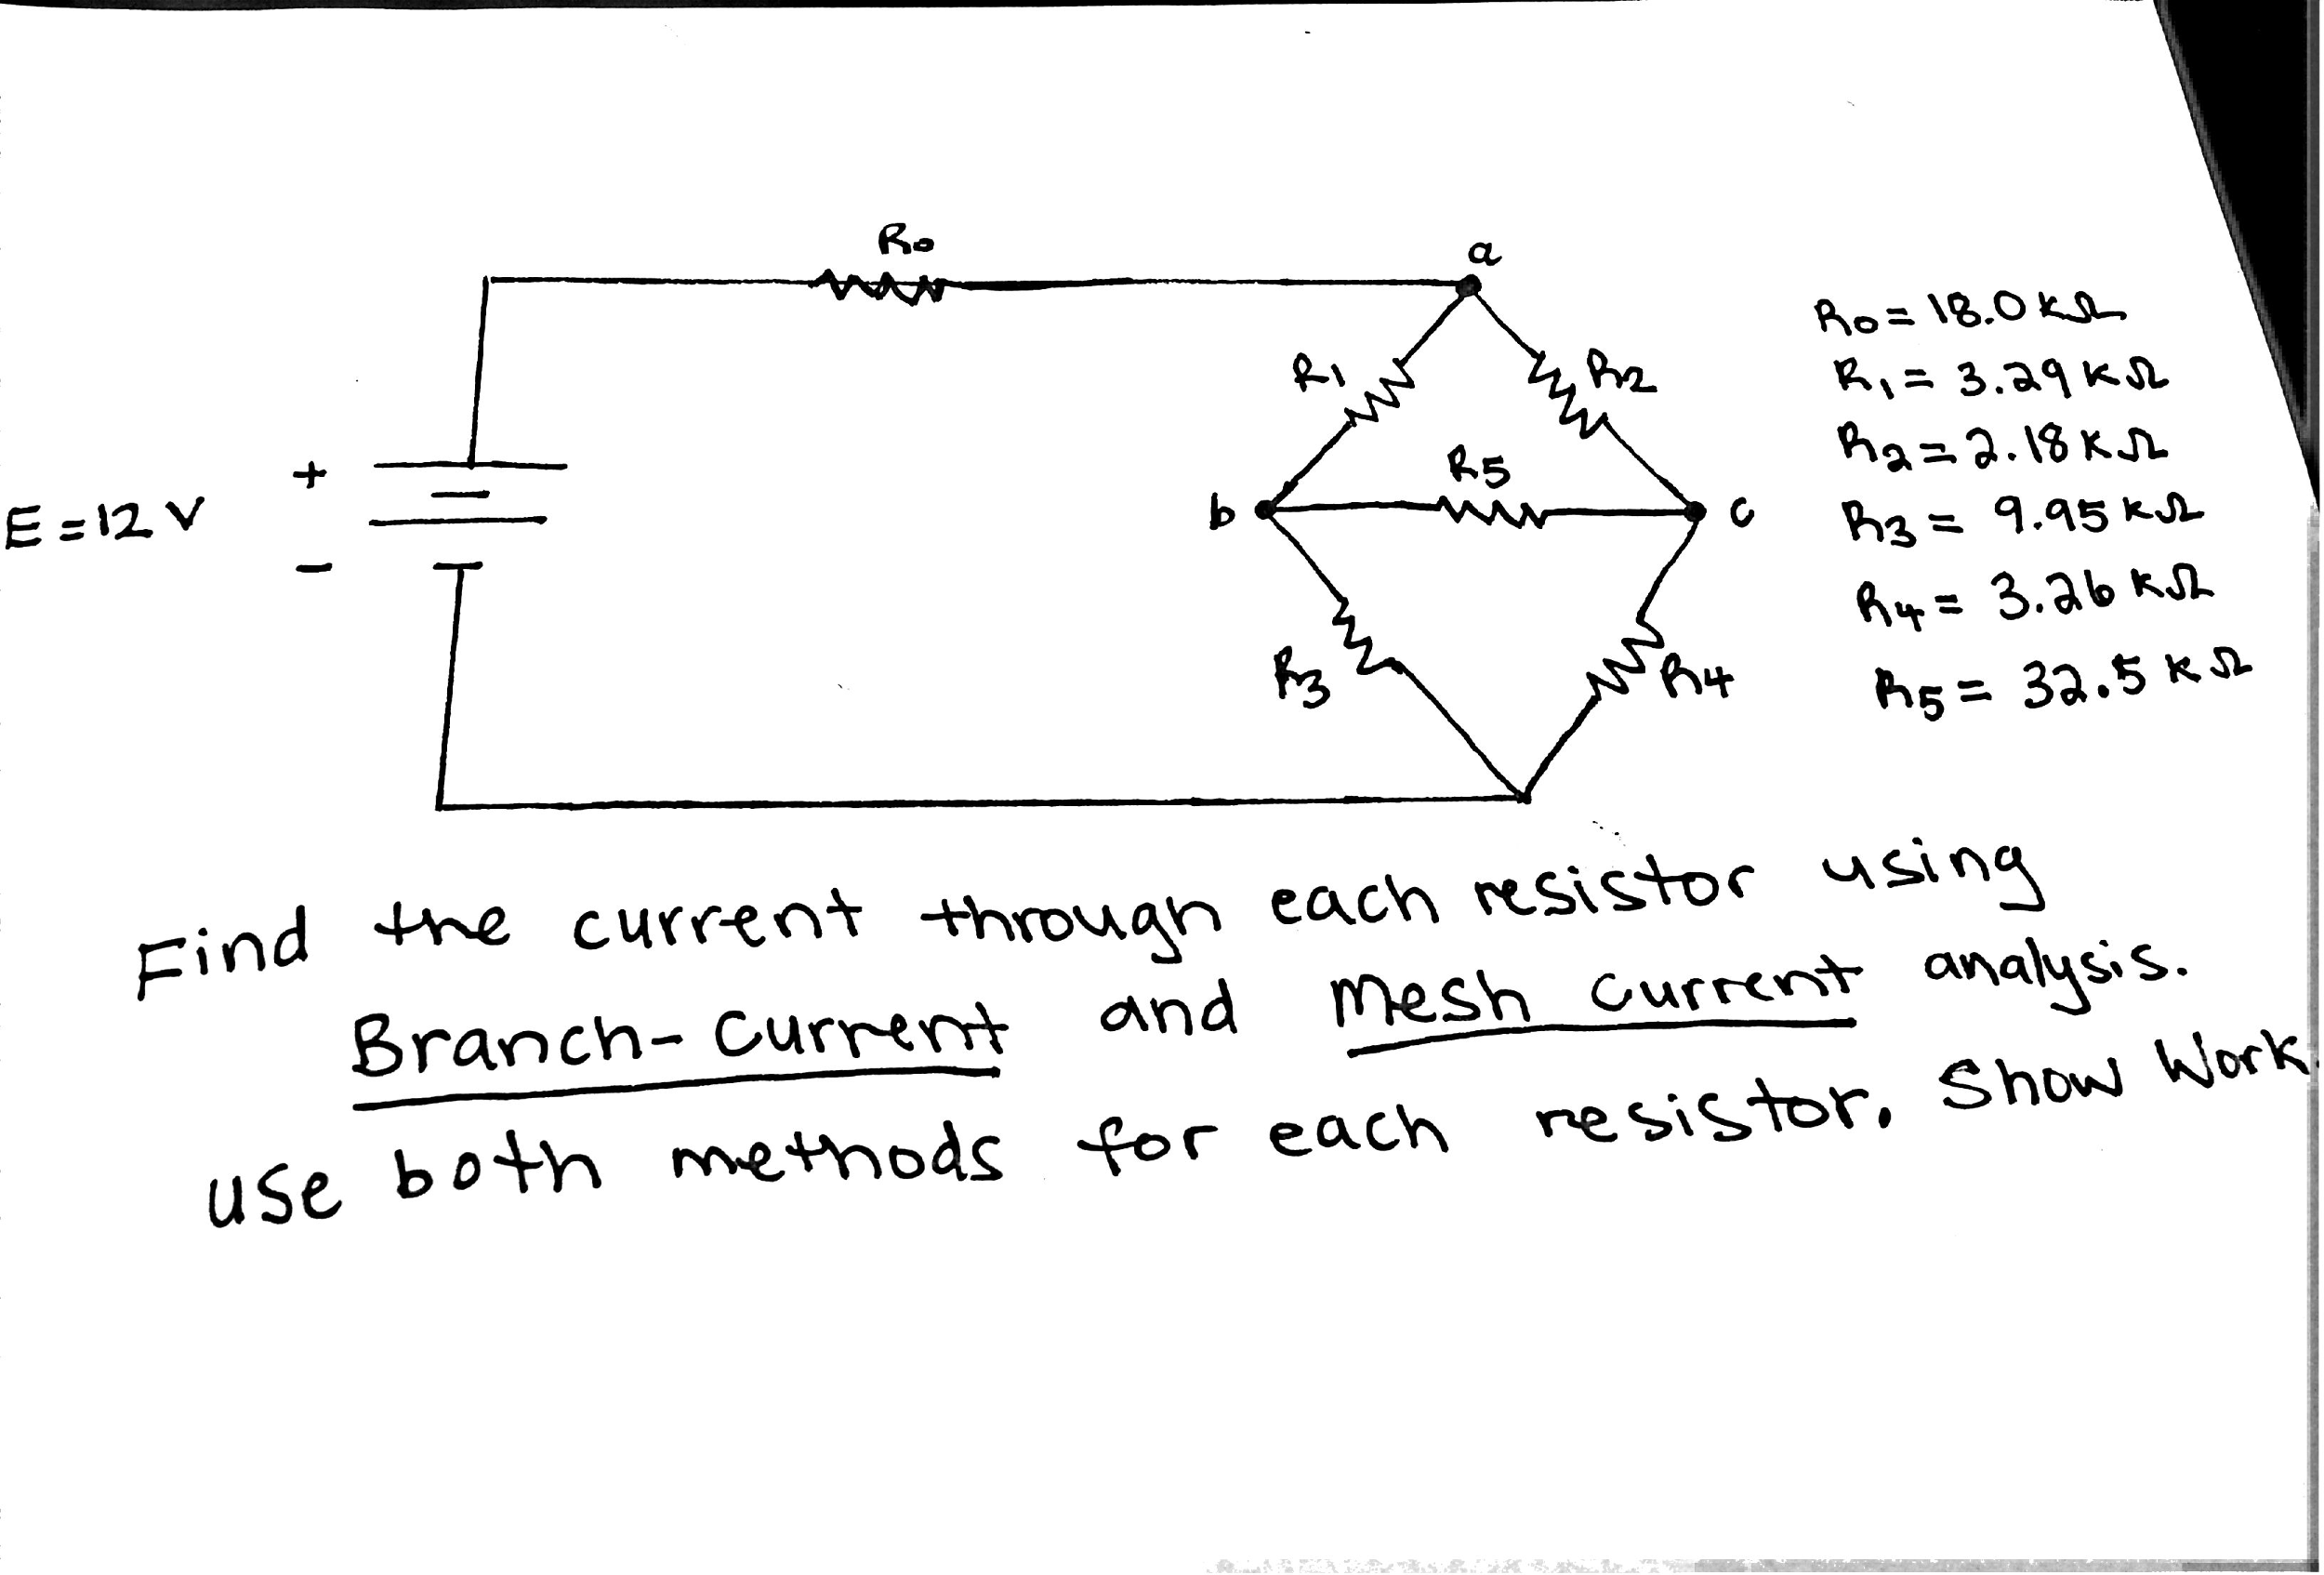 R0
a
R0 = 18.0 kΩ
R1
R2
R1 = 3.29 kΩ
R2 = 2.18 kΩ
+
R5
E = 12 V
b
c
R3 = 9.95 kΩ
-
R4 = 3.26 kΩ
R3
R4
R5 = 32.5 kΩ
Find the current through each resistor using
Branch-Current and Mesh Current analysis.
use both methods for each resistor. Show Work.